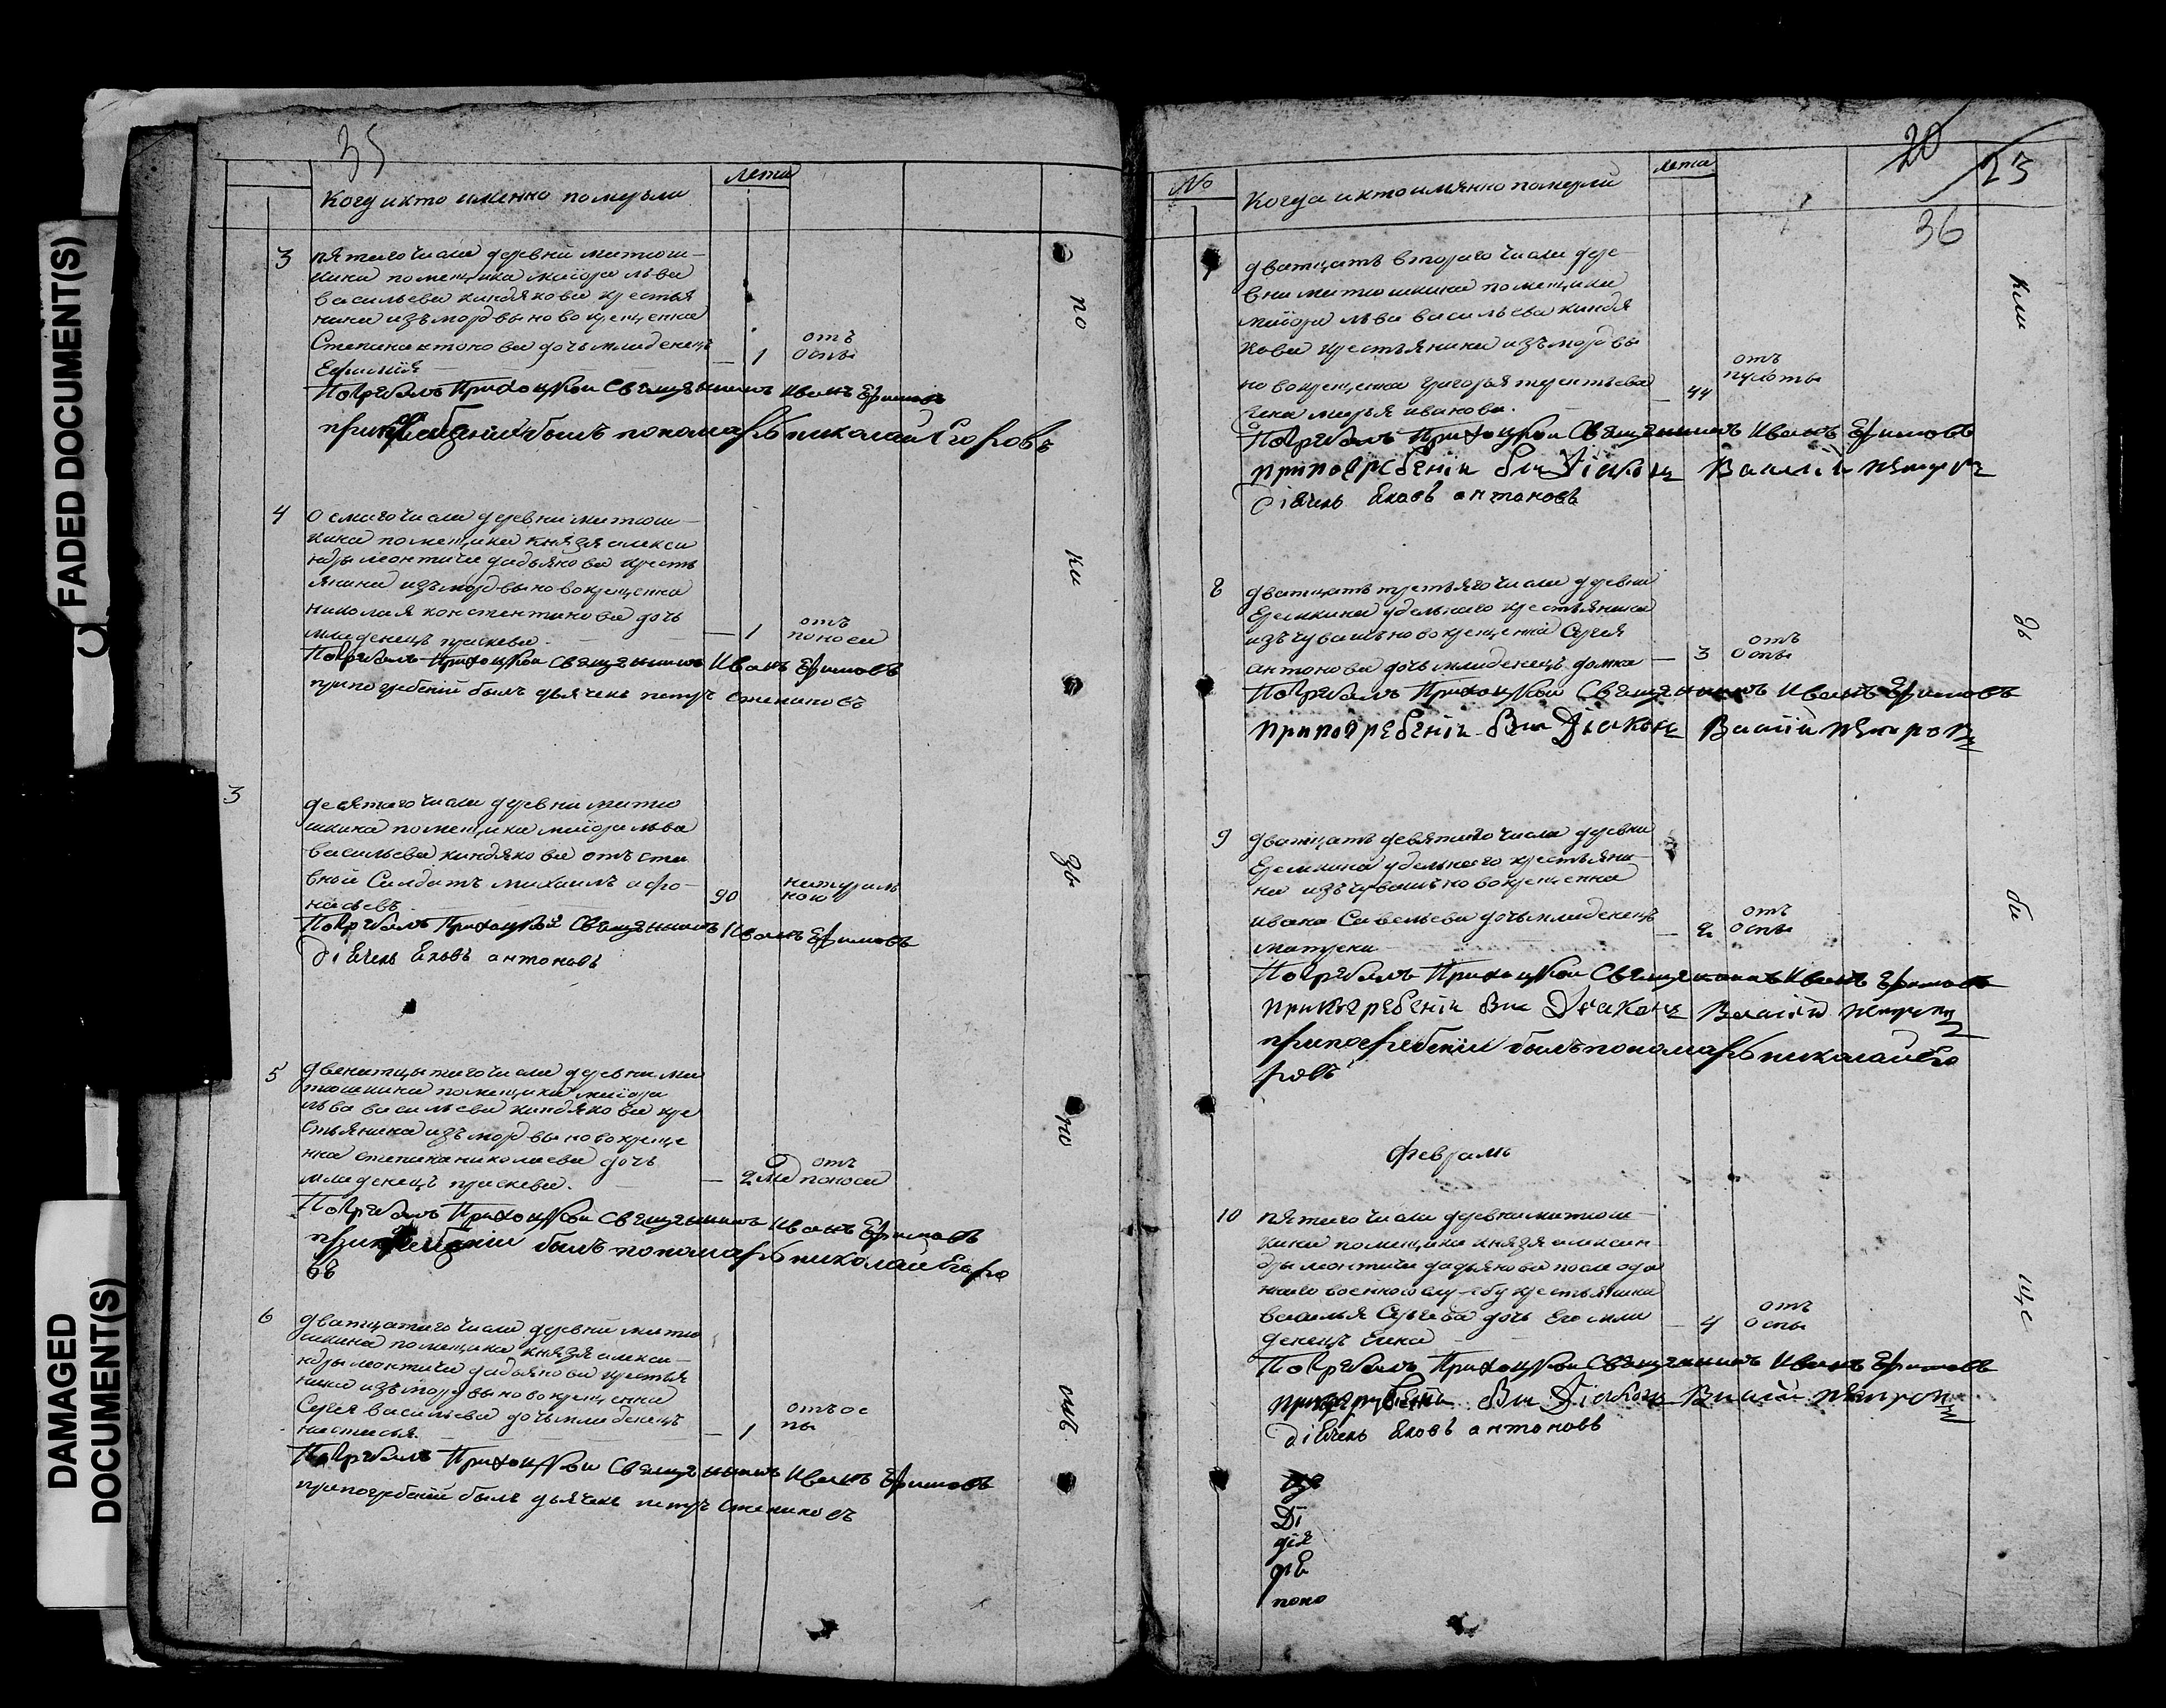 FADED DOCUMENT(S)
DAMAGED
DOCUMENT(S)
35
Когда и кто именно померли
Лета
3 пятаго числа деревни митюш-
кина помещика маиора льва
васильева киндякова крестья
нина изъ мордвы новокрещенна
Степана антонова дочь младенецъ
Ефимия — 1 отъ оспы
Погребалъ Приходцкои Священникъ Иванъ Ефимовъ
при погребении былъ пономарь николаи Егоровъ
4 осмаго числа деревни митюш-
кина помещика князя алекса
ндры леонтича дадьянова кресть
янина изъ мордвы новокрещенна
николая константинова дочь
младенецъ праскева — 1 отъ поноса
Погребалъ Приходцкои Священникъ Иванъ Ефимовъ
при погребении былъ дьячекъ петръ степановъ
3 десятаго числа деревни митю
шкина помещика маиора льва
васильева киндякова отъ ста
вной Салдатъ михаилъ афо-
насьевъ 90 натураль
ною
Погребалъ Приходцкой Священникъ Иванъ Ефимовъ
діячекъ яковъ антоновъ
5 двенатцытаго числа деревни ми
тюшкина помещика маиора
льва васильева киндякова кре
стьянина изъ мордвы новокреще
нна степана николаева дочь
младенецъ праскева — 2 отъ поноса
Погребалъ Приходцкои Священникъ Иванъ Ефимовъ
при погребении былъ пономарь николаи Егоро
въ
6 дватцатаго числа деревни митю
шкина помещика князя алекса-
ндры леонтича дадьянова крестья
нина изъ мордвы новокрещенна
Сергея васильева дочь младенецъ
настасья — 1 отъ ос
пы
Погребалъ Приходцкои Священникъ Иванъ Ефимовъ
при погребении былъ дьячекъ петръ степановъ
по
ки
зы
но
№
Когда и кто имянно померли
лета
20
23
36
7 дватцать втораго числа дере-
вни митюшкина помещика
маиора льва васильева киндя
кова крестьянина изъ мордвы
новокрещенна григорья терентьева
жена марья иванова. — 44 отъ
Погребалъ Приходцкои Священникъ Иванъ Ефимовъ
при погребеніи бы Діаконъ Василіи петровъ
діячекъ яковъ антоновъ
8 дватцать третьяго числа деревни
Еделкина удельнаго крестьянина
изъ чувашъ новокрещенна Сергея
антонова дочь младенецъ домка — 3 отъ оспы
Погребалъ Приходцкои Священникъ Иванъ Ефимовъ
при погребеніи бы Діаконъ Василіи петровъ
9 дватцать девятаго числа деревни
Еделкина удельнаго крестьяни-
на изъ чувашъ новокрещенна
ивана Савельева дочь младенецъ
матрена — 2 отъ оспы
Погребалъ Приходцкои Священникъ Иванъ Ефимовъ
при погребеніи бы Діаконъ Василіи петровъ
при погребении былъ пономарь николаи Его
ровъ
февраль
10 пятаго числа деревни митюш-
кина помещика князя алексан-
дры леонтича дадьянова после отда
ннаго военною службу крестьянина
василья Сергеева дочь Его мла
денецъ Елена — 4 отъ оспы
Погребалъ Приходцкои Священникъ Иванъ Ефимовъ
при погребеніи бы Діаконъ Василіи петровъ
діячекъ яковъ антоновъ
Ді
дія
поно
дь
би
ще